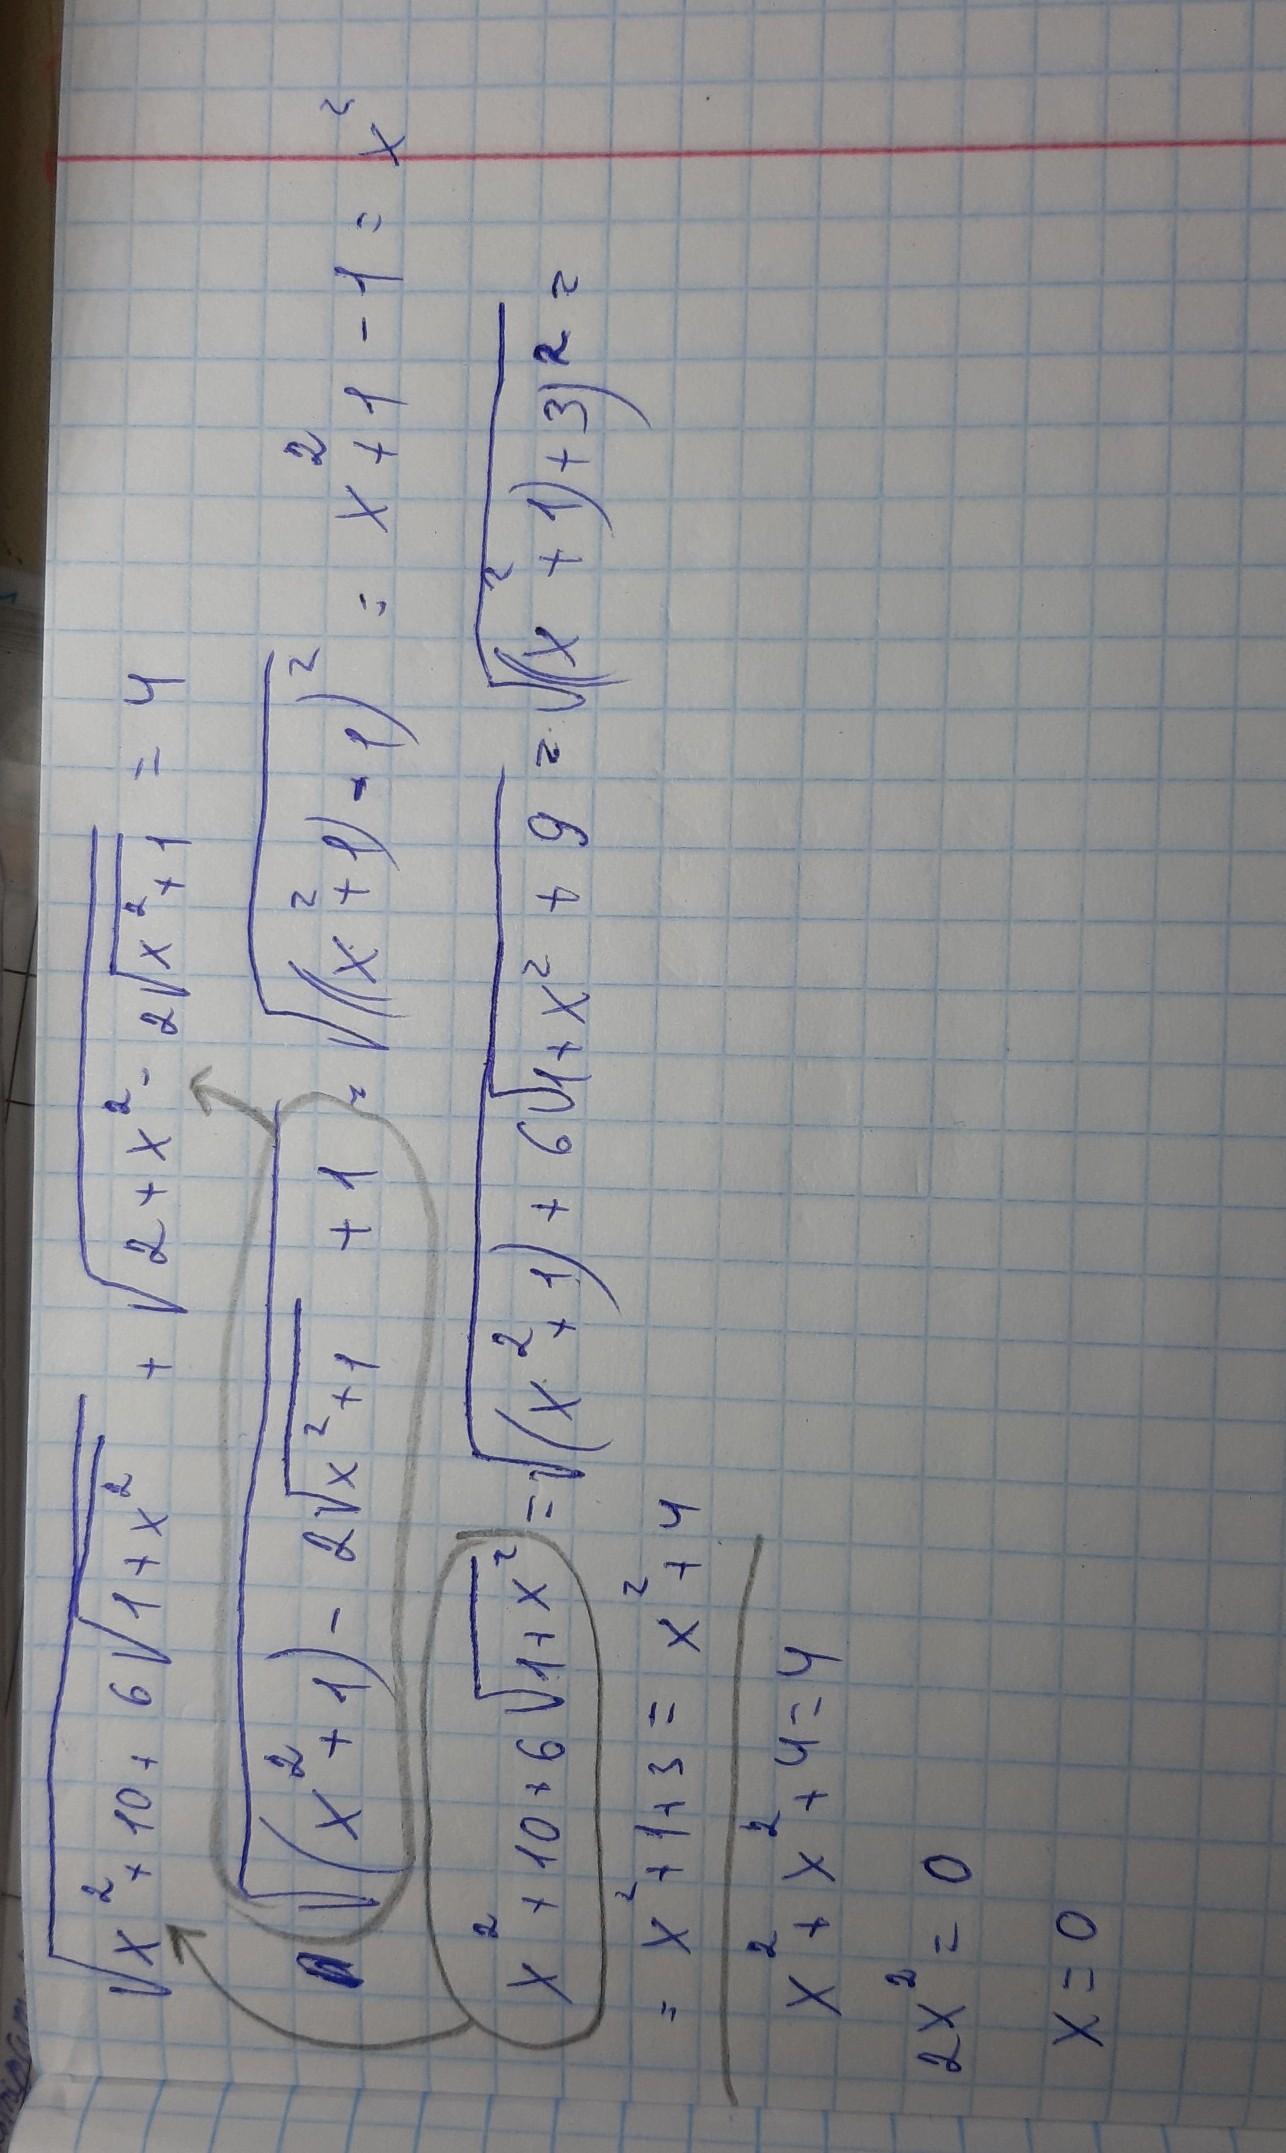 √(x² + 10 + 6√(1 + x²)) + √(2 + x² - 2√(x² + 1)) = 4
√((x² + 1) - 2√(x² + 1) + 1) = √((x² + 1) - 1)² = x² + 1 - 1 = x²
x² + 10 + 6√(1 + x²) = √((x² + 1) + 6√(1 + x²) + 9) = √((x² + 1) + 3)² =
= x² + 1 + 3 = x² + 4
x² + x² + 4 = 4
2x² = 0
x = 0